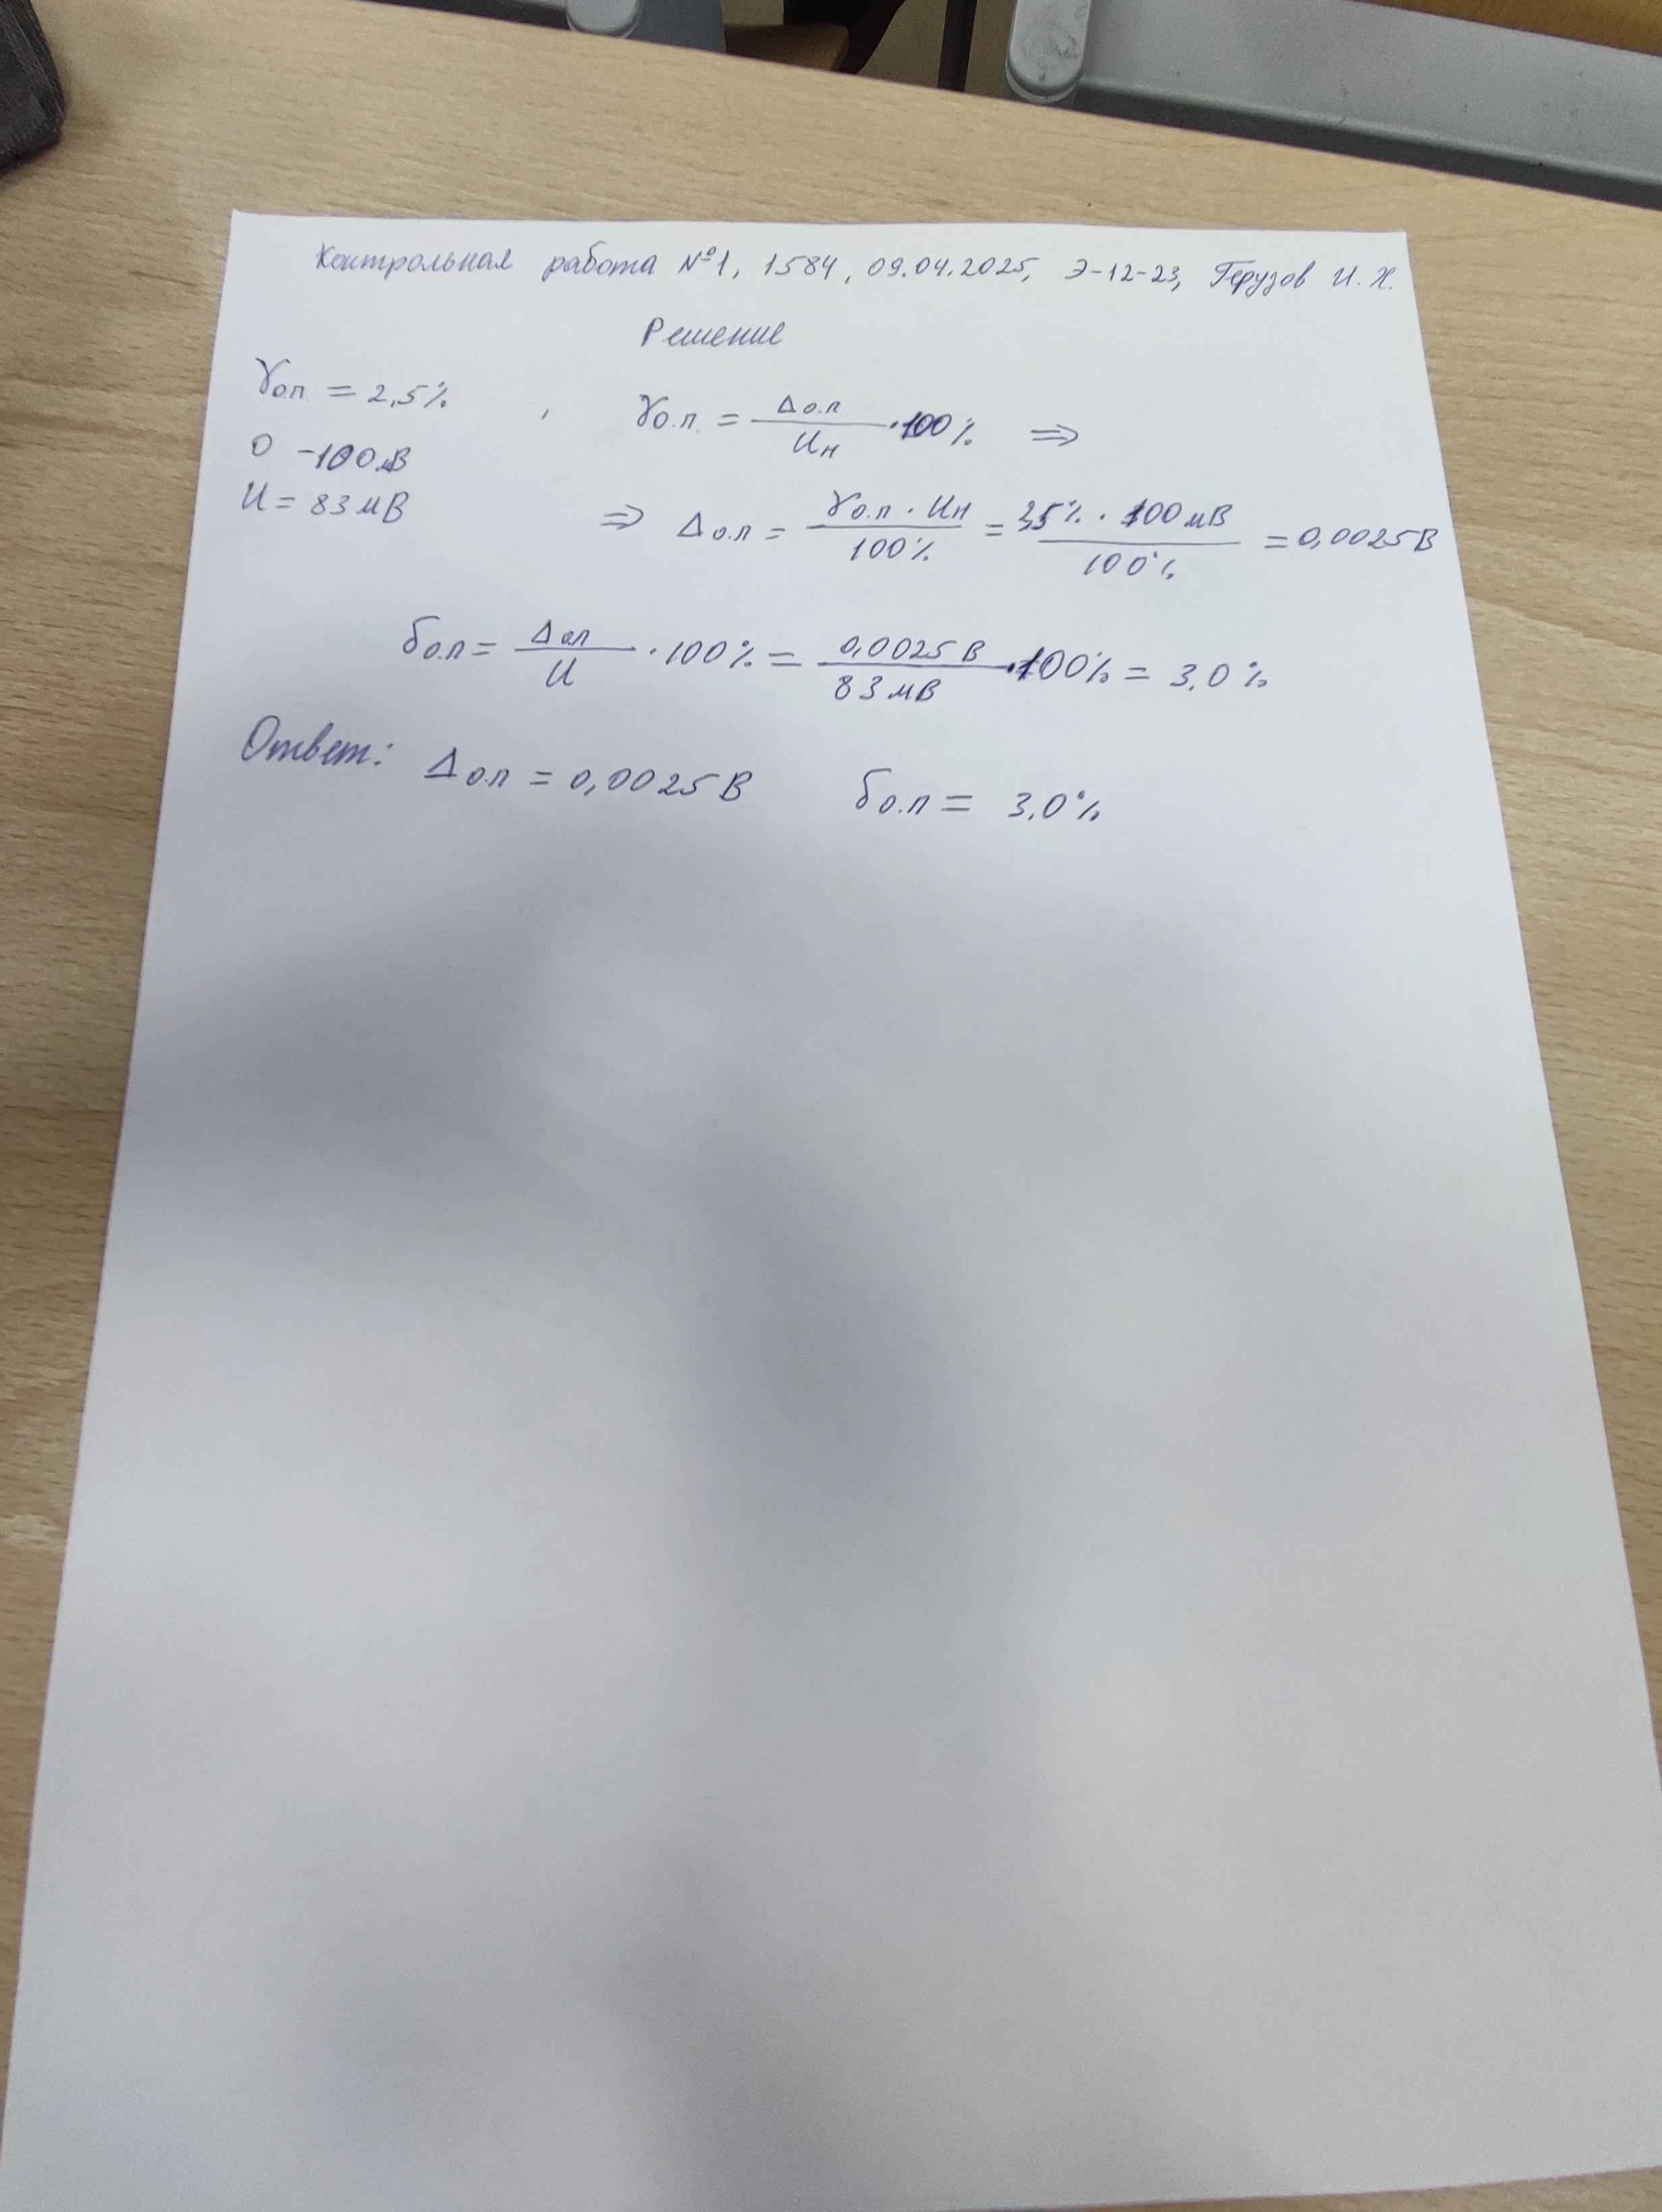 Контрольная работа №1, 1584, 09.04.2025, Э-12-23, Герузов И. Х.
Решение
γо.п. = 2,5%
0 -100мВ
U = 83 мВ
γо.п. = Δо.п / Uн · 100% ⇒
⇒ Δо.п = γо.п · Uн / 100% = 2,5% · 100 мВ / 100% = 0,0025 В
δо.п = Δо.п / U · 100% = 0,0025 В / 83 мВ · 100% = 3,0 %
Ответ: Δо.п = 0,0025 В δо.п = 3,0%